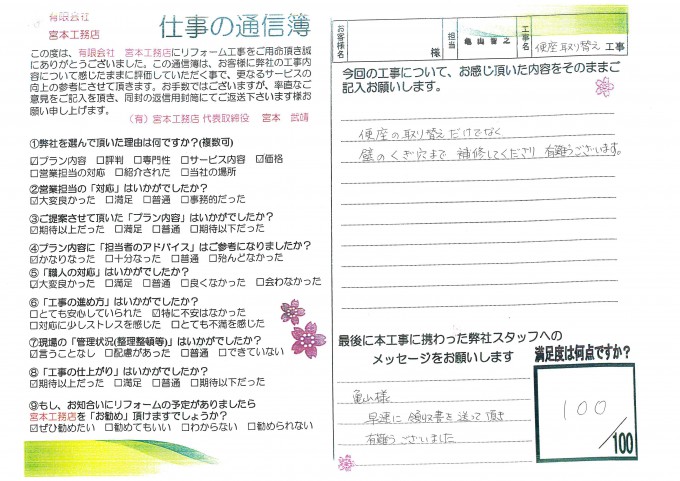 有限会社
宮本工務店
仕事の通信簿
この度は、有限会社 宮本工務店にリフォーム工事をご用命頂き誠
にありがとうございました。この通信簿は、お客様に弊社の工事内
容について感じたままに評価していただく事で、更なるサービスの
向上の参考にさせて頂きます。お手数ではございますが、率直なご
意見をご記入を頂き、同封の返信用封筒にてご返送下さいます様お
願い申し上げます。
(有)宮本工務店 代表取締役 宮本 武靖
①弊社を選んで頂いた理由は何ですか?(複数可)
☑プラン内容 □評判 □専門性 □サービス内容 ☑価格
□営業担当の対応 □紹介された □当社の場所
②営業担当の「対応」はいかがでしたか?
☑大変良かった □満足 □普通 □事務的だった
③ご提案させて頂いた「プラン内容」はいかがでしたか?
☑期待以上だった □満足 □普通 □期待以下だった
④プラン内容に「担当者のアドバイス」はご参考になりましたか?
☑かなりなった □十分なった □普通 □殆んどなかった
⑤「職人の対応」はいかがでしたか?
☑大変良かった □満足 □普通 □良くなかった □会わなかった
⑥「工事の進め方」はいかがでしたか?
□とても安心していられた ☑特に不安はなかった
□対応に少しストレスを感じた □とても不満を感じた
⑦現場の「管理状況(整理整頓等)」はいかがでしたか?
☑言うことなし □配慮があった □普通 □できていない
⑧「工事の仕上がり」はいかがでしたか?
☑期待以上だった □満足 □普通 □期待以下だった
⑨もし、お知合いにリフォームの予定がありましたら
宮本工務店を「お勧め」頂けますでしょうか?
☑ぜひ勧めたい □勧めてもいい □わからない □勧められない
お客様名 様 担当 亀山智之 工事名 便座取り替え 工事
今回の工事について、お感じ頂いた内容をそのままご
記入お願いします。
便座の取り替えだけでなく
壁のくぎ穴まで 補修してくださり 有難うございます。
最後に本工事に携わった弊社スタッフへの
メッセージをお願いします
亀山様
早速に 領収書を送って頂き
有難うございました
満足度は何点ですか?
100
/100